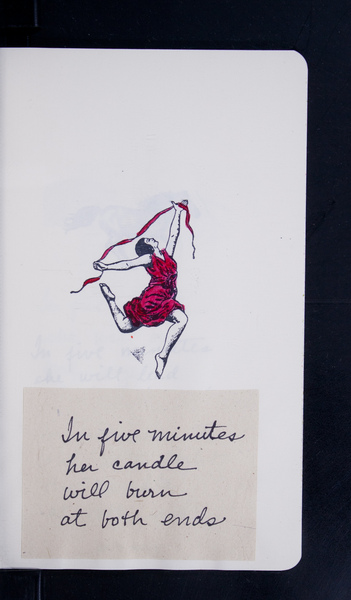 In five minutes
her candle
will burn
at both ends